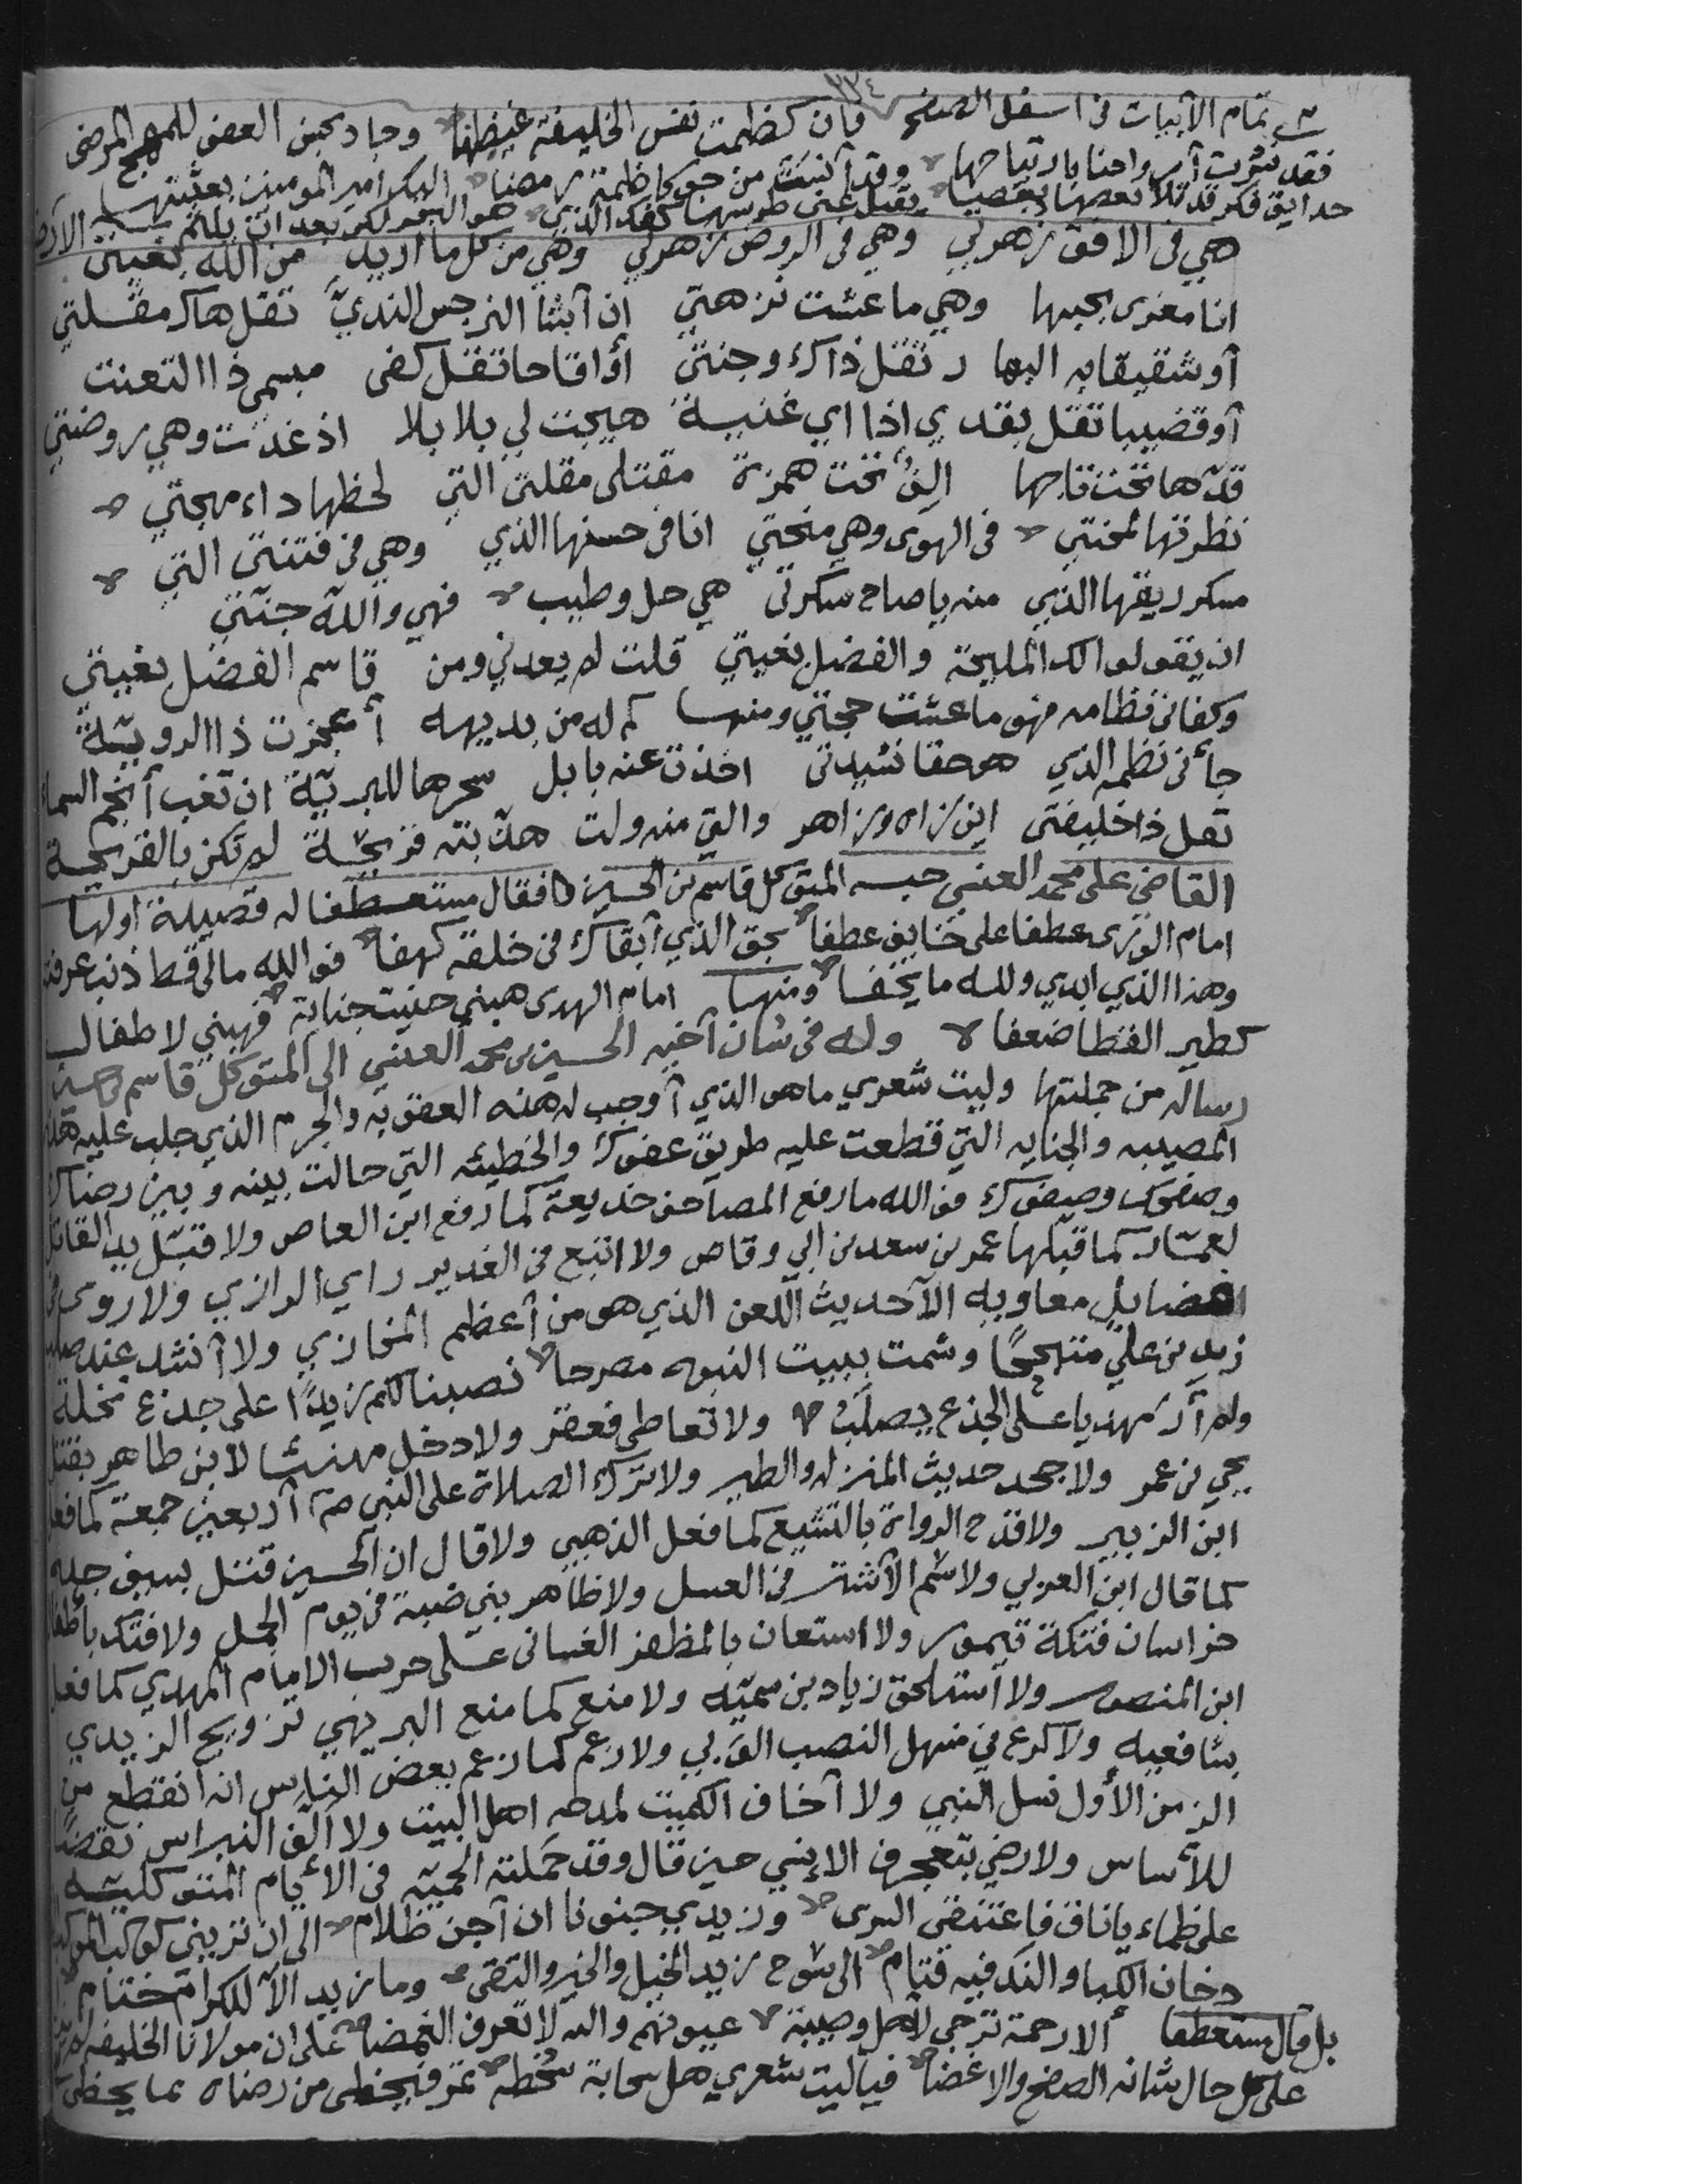 ٣٣٤
تمام الأبيات في اسفل الصفح فان كظمت نفس الخليفة غيظها وجاد بحسن العفو للمهج المرضى
فقد نشرت أرواحنا بارتياحها وقد آنست من جو كاظمة ومضا اليكم امير المومنين بعثتها
حدايق فكر قد تلا بعضها بعضا يقبل عني طرسها كفك الذي هو البحر لكن بعد ان يلثم الارضا
هي في الافق زهرتي وهي في الروض زهرتي وهي من كل ما اريد من الله بغيتي
انا مغرى بحبها وهي ما عشت نزهتي إن أبثنا النرجس النديّ تقل هاك مقلتي
أو شقيقا به البها ر تقل ذاك وجنتي أو اقاحا تقل كفى مبسمي ذا التعنت
أو قضيبا تقل بقدي اذا اي غنية هيجت لي بلابلا اذ غدت وهي روضتي
قدّها تحت تاجها الِفٌ تحت همزة مقتلي مقلتي التي لحظها داء مهجتي
نظرتها لمحنتي في الهوى وهي منحتي انا في حسنها الذي وهي في فتنتي التي
سكر ريقها الذي منه يا صاح سكرتي هي حل وطيب فهي والله جنتي
ان يقولوا لك المليحة والفضل بغيتي قلت لم يعدني ومن قاسم الفضل بغيتي
وكفاني نظامه فهو ما عشت حجتي ومنها كم له من بديهه أعجزت ذا الرويّة
جأني نظمه الذي هو حقا نشيدتي اخذت عنه بابل سحرها للبريّة ان تغب أنجم السما
تقل ذا خليفتي اين زاه وزاهر والتي منه ولت هذّبته قريحة لم تكن بالقريحة
القاضي علي محمد العنسي حبسه المتوكل قاسم بن الحسين فقال مستعطفا له قصيدة اولها
امام الورى عطفا على خايف عطفا بحق الذي أبقاك في خلقه كهفا فوالله مالي قط ذنب عرفته
وهذا الذي ابدي ولله ما يخفا ومنها امام الهدى هبني جنيت جناية فهبني لاطفال
كطير القطا ضعفا وله في شان أخيه الحسين بن محمد العنسي الى المتوكل قاسم بن حسين
رساله من جملتها وليت شعري ما هو الذي أوجب له هذه العقوبه والجرم الذي جلب عليه هذه
المصيبه والجنايه التي قطعت عليه طريق عفوك والخطيئه التي حالت بينه وبين رضاك
وصفحك وصفوك فوالله ما رفع المصاحف خديعة كما رفع ابن العاص ولا قبّل يد القاتل
لعمّار كما قبلها عمر بن سعد بن ابي وقاص ولا اتبع في الغدير راي الرازي ولا روى في
فضايل معاويه الا حديث اللعن الذي هو من أعظم المخازي ولا أنشد عند صلب
زيد بن علي متبجحًا وشمت ببيت النبوه مصرحا نصبنا لكم زيدًا على جذع نخلة
ولم أر مهديا على الجذع يصلبُ ولا تعاطى فعقر ولا دخل مهنئا لابن طاهر بقتل
يحيى بن عمر ولا جحد حديث المنزله والطير ولا ترك الصلاة على النبي أربعين جمعة كما فعل
ابن الزبير ولا قدح الرواة بالتشيع كما فعل الذهبي ولا قال ان الحسين قتل بسيف جده
كما قال ابن العربي ولا سمّ الأشتر في العسل ولا ظاهر بني ضبة في يوم الجمل ولا فتك بأطفال
خراسان فتكة تيمور ولا استعان بالمظفر الغساني على حرب الامام المهدي كما فعل
ابن المنصور ولا استلحق زياد بن سميّه ولا منع كما منع البريهي تزويج الزيدي
بشافعيه ولا كرع في منهل النصب الوبي ولا زعم كما زعم بعض الناس انه انقطع من
الزمن الأول نسل النبي ولا أخاف الكميت لمدحه اهل البيت ولا الّف النبراس نقضًا
للأساس ولا رضي بتعجرف الإنسي حين قال وقد حَملته الحميّه في الأيام المتوكليّه
على ظماء يا ناق فاعتنقي السرى وزيدي جنونا ان أجن ظلام الى ان تريني كوكب الموكب
دخان الكبا والند فيه قتام الى سوح زيد الخيل والخير والتقى وما زيد الا للكرام ختام
بل قال مستعطفا ألا رحمة ترجى لأهل وصبية عيونهم والله لا تعرف الغمضا على ان مولانا الخليفه لم يزل
على كل حال شانه الصفح والاغضا فياليت شعري هل سحابة سُخطه تمر فيحظى من رضاه بما يحظى